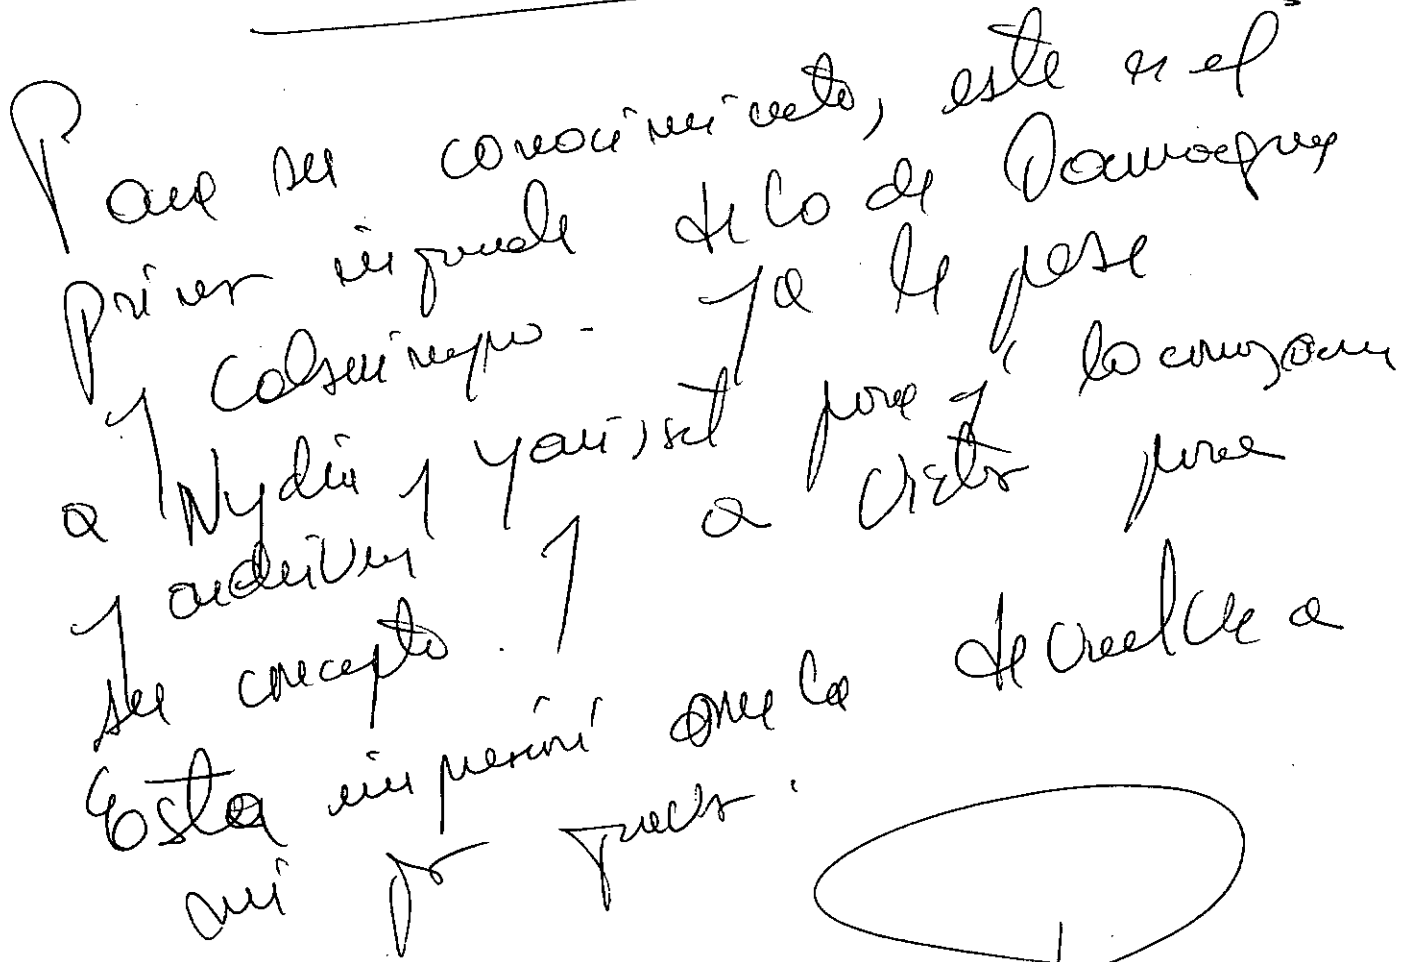 Para su conocimiento, este es el
primer informe de lo de
y Colsubsidio - ya le pase
a Nydia y Yanisset para q' lo conozcan
y archiven y a Victor para
su concepto.
Esta impresión que la devuelve a
mi pr favor.